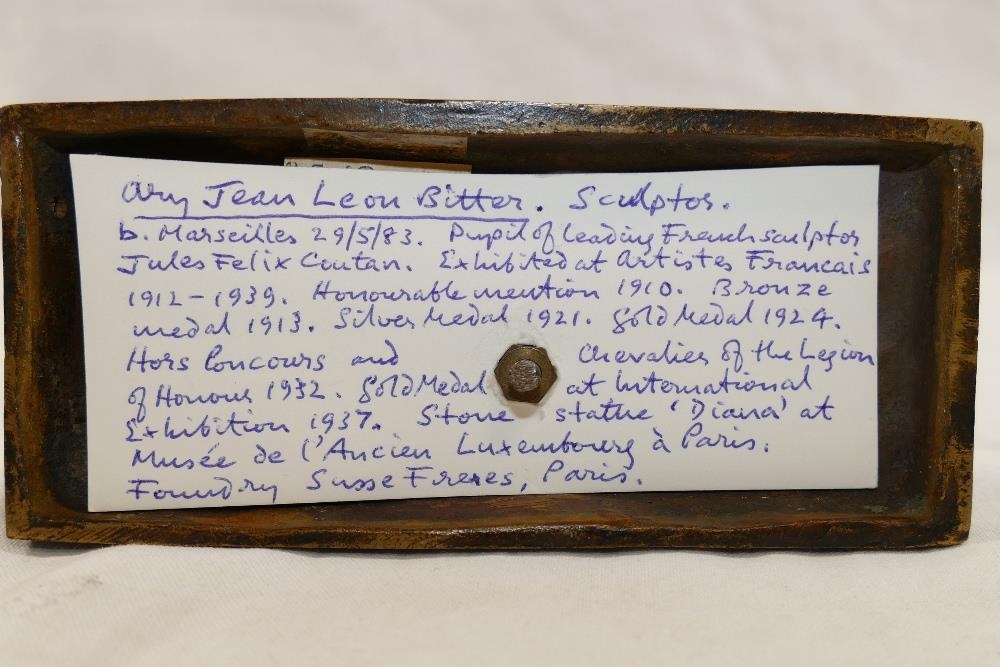 Ary Jean Leon Bitter. Sculptor.
b. Marseilles 29/5/83. Pupil of leading French sculptor
Jules Felix Coutan. Exhibited at Artistes Francais
1912-1939. Honourable mention 1910. Bronze
medal 1913. Silver Medal 1921. Gold Medal 1924.
Hors Concours and Chevalier of the Legion
of Honour 1932. Gold Medal at International
Exhibition 1937. Stone statue 'Diana' at
Musée de l'Ancien Luxembourg à Paris.
Foundry Susse Freres, Paris.